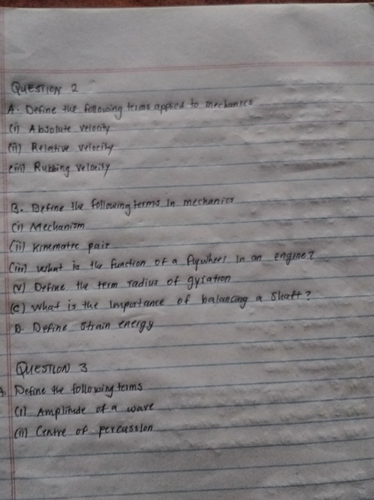 QUESTION 2
A. Define the following terms applied to mechanics
(i) Absolute velocity
(ii) Relative velocity
(iii) Rubbing velocity
B. Define the following terms in mechanics
(i) Mechanism
(ii) Kinematic pair
(iii) What is the function of a flywheel in an engine?
(v) Define the term radius of gyration
(c) What is the importance of balancing a shaft?
D. Define strain energy
QUESTION 3
A. Define the following terms
(i) Amplitude of a wave
(ii) Centre of percussion